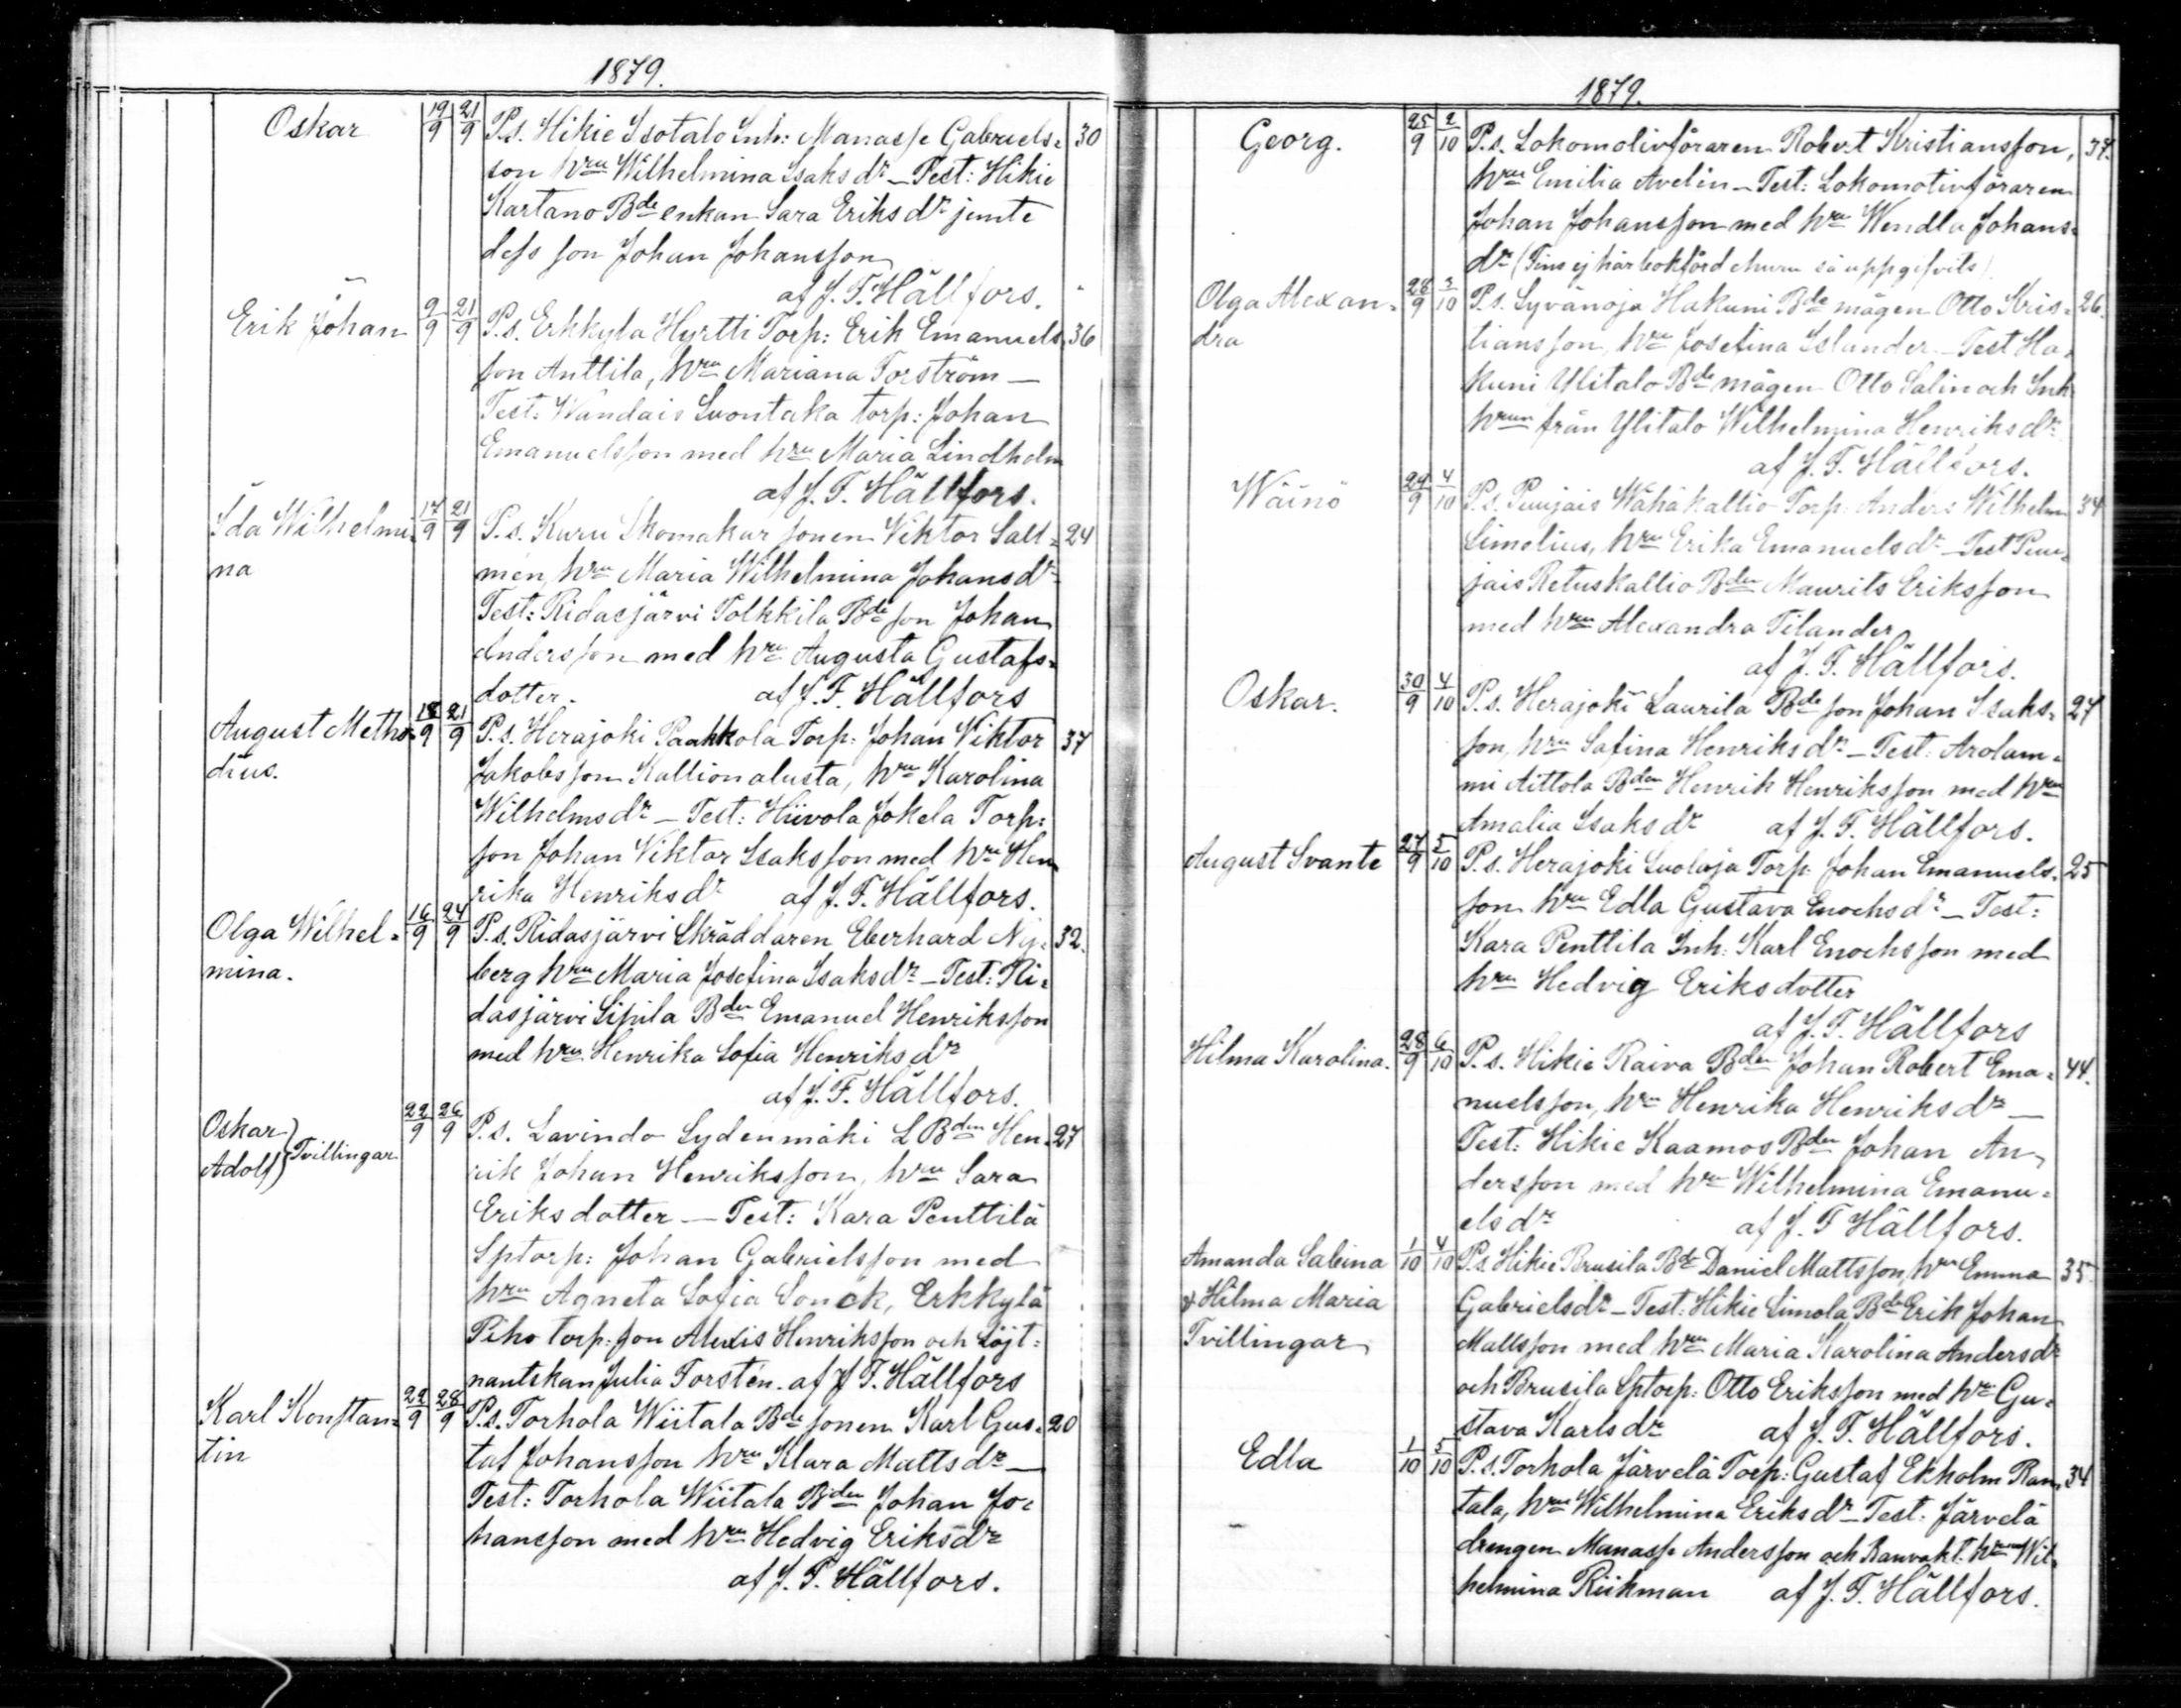 1879.
Oskar 19/9 21/9 P.s. Hikie Isotalo Inh: Manasse Gabriels= 30
son hru Wilhelmina Isaksdr – Test: Hikie
Kartano Bde enkan Sara Eriksdr jemte
dess son Johan Johansson
af J. F. Hällfors.
Erik Johan 9/9 21/9 P.s. Erkkyla Hyrtti Torp: Erik Emanuels 36
son Anttila, hru Mariana Forström –
Test: Wandais Luontaka torp: Johan
Emanuelsson med hru Maria Lindholm
af J. F. Hällfors.
Ida Wilhelmi= 17/9 21/9 P.s. Kuru Skomakar sonen Viktor Salt= 24
na mén, hru Maria Wilhelmina Johansdr
Test: Ridasjärvi Tolkkila Bde son Johan
Andersson med hru Augusta Gustafs=
dotter. af J. F. Hällfors
August Metho= 18/9 21/9 P.s. Herajoki Paahkola Torp: Johan Viktor 37
dius. Jakobsson Kallionalusta, hru Karolina
Wilhelmsdr – Test: Hiivola Jokela Torp:
son Johan Viktor Isaksson med hru Hen
rika Henriksdr af J. F. Hällfors.
Olga Wilhel= 16/9 24/9 P.s. Ridasjärvi Skräddaren Eberhard Ny= 32.
mina. berg hru Maria Josefina Isaksdr – Test: Ri=
dasjärvi Sipila Bden Emanuel Henriksson
med hru Henrika Sofia Henriksdr
af J. F. Hällfors.
Oskar 22/9 26/9 P.s. Lavinda Sydenmäki L Bden Hen= 27
Adolf } Tvillingar rik Johan Henriksson, hru Sara
Eriksdotter – Test: Kara Penttilä
Sptorp: Johan Gabrielsson med
hru Agneta Sofia Sonck, Erkkylä
Piho torp: son Alexis Henriksson och Löjt=
nantskan Julia Forstén. af J. F. Hällfors
Karl Konstan= 22/9 28/9 P.s. Torhola Wiitala Bde sonen Karl Gus= 20
tin taf Johansson hru Klara Mattsdr –
Test: Torhola Wiitala Bden Johan Jo=
hansson med hru Hedvig Eriksdr
af J. F. Hällfors.
1879.
Georg. 25/9 2/10 P.s. Lokomotivföraren Robert Kristiansson, 37.
hru Emilia Avelin – Test: Lokomotivföraren
Johan Johansson med hru Wendla Johans=
dr (Fins ej här bokförd ehuru så uppgifvits)
Olga Alexan= 28/9 3/10 P.s. Syvänoja Hakuni Bde mågen Otto Kris= 26.
dra tiansson, hru Josefina Selander – Test Ha=
kuni Ylitalo Bde mågen Otto Salin och Inh
hrun från Ylitalo Wilhelmina Henriksdr
af J. F. Hällfors.
Wäinö 29/9 4/10 P.s. Puujais Wähäkallio Torp: Anders Wilhelm 34
Simelius, hru Erika Emanuelsdr – Test Puu=
jais Retuskallio Bden Maurits Eriksson
med hru Alexandra Tilander
af J. F. Hällfors.
Oskar. 30/9 4/10 P.s. Herajoki Laurila Bde son Johan Isaks= 27
son, hru Safina Henriksdr – Test: Arolam=
mi Aittola Bden Henrik Henriksson med hru
Amalia Isaksdr af J. F. Hällfors.
August Svante 27/9 5/10 P.s. Herajoki Luoloja Torp: Johan Emanuels= 25
son hru Edla Gustava Enochsdr – Test:
Kara Penttila Inh: Karl Enochsson med
hru Hedvig Eriksdotter
af J. F. Hällfors
Hilma Karolina. 28/9 6/10 P.s. Hikie Raiva Bden Johan Robert Ema= 44.
nuelsson, hru Henrika Henriksdr –
Test: Hikie Kaamos Bden Johan An=
dersson med hru Wilhelmina Emanu=
elsdr af J. F Hällfors.
Amanda Sabina 1/10 4/10 P.s. Hikie Brusila Bde Daniel Mattsson, hru Emma 35.
& Hilma Maria Gabrielsdr – Test: Hikie Simola Bde Erik Johan
Tvillingar Mattsson med hru Maria Karolina Andersdr
och Brusila Sptorp: Otto Eriksson med hru Gu=
stava Karlsdr af J. F. Hällfors.
Edla 1/10 5/10 P.s. Torhola Järvelä Torp: Gustaf Ekholm Ran= 34
tala, hru Wilhelmina Eriksdr – Test: Järvelä
drengen Manasse Andersson och Banvakt. hrun Wil=
helmina Riikman af J. F. Hällfors.